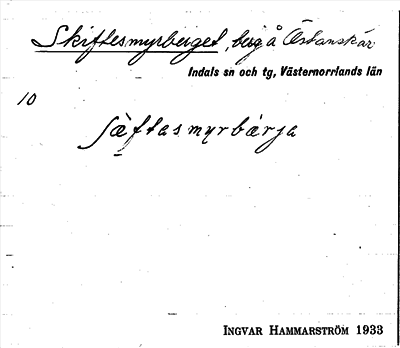 Skiftesmyrberget, berg å Östanskär
Indals sn och tg, Västernorrlands län
10
ʃæ̀ftasmyrbárja
INGVAR HAMMARSTRÖM 1933